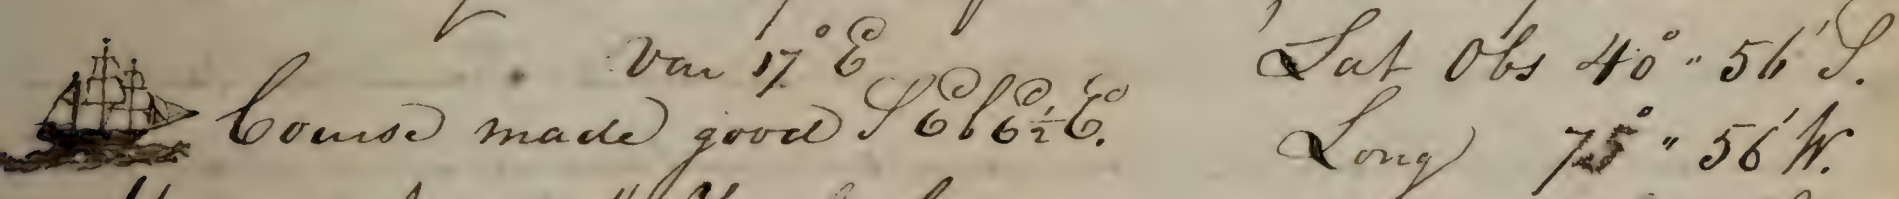 Var 17° E
Lat Obs 40° " 56' S.
Course made good S E b E ½ E.
Long 75° " 56' W.